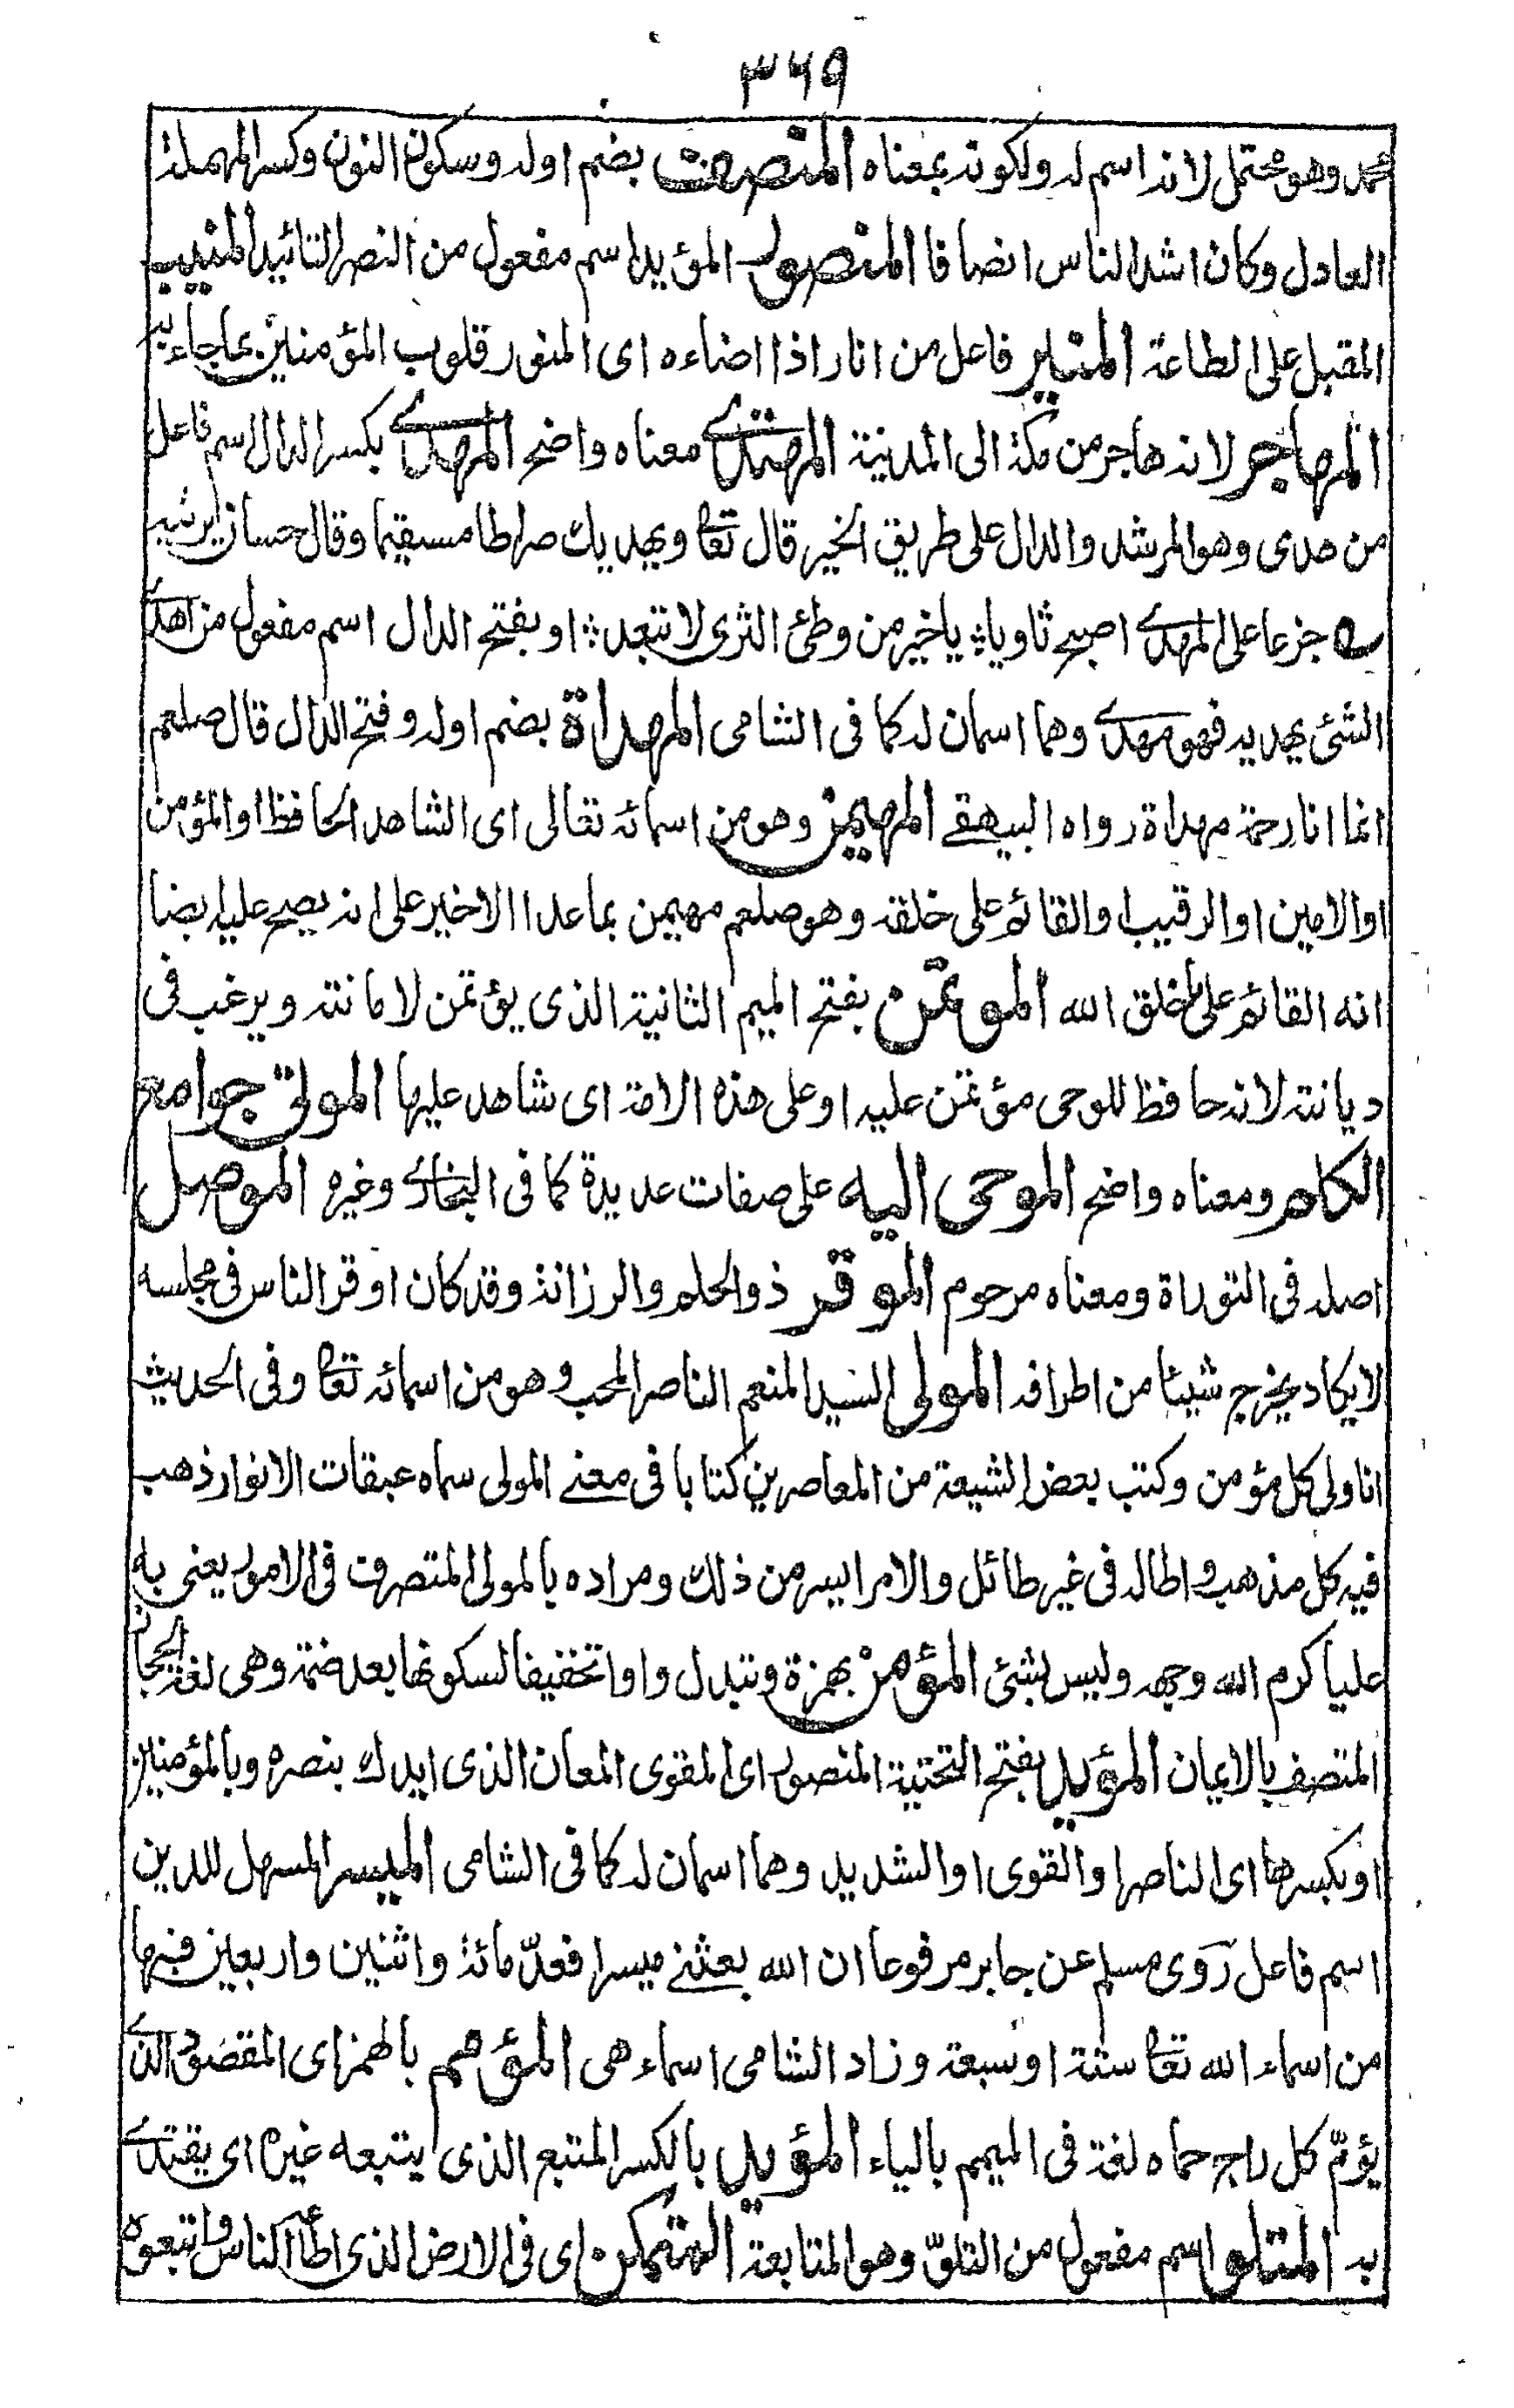 ٣٦٩
محمد وهو محتمل لانه اسم له ولكونه بمعناه المنصف بضم اوله وسكون النون وكسر المهملة
العادل وكان اشد الناس انصافا المنصور المؤيد اسم مفعول من النصر التائيد المنيب
المقبل على الطاعة المنير فاعل من انار اذا اضاءه اى المنور قلوب المؤمنين بما جاء به
المهاجر لانه هاجر من مكة الى المدينة المهتدى معناه واضح المهدى بكسر الدال اسم فاعل
من هدى وهو المرشد والدال على طريق الخير قال تعا ويهديك صراطا مستقيما وقال حسان يرثيه
جزعا على المهدى اصبح ثاويا ؞ ياخير من وطئ الثرى لا تبعد ؞ او بفتح الدال اسم مفعول من اهدى
الشئ يهديه فهو مهدى وهما اسمان له كما فى الشامى المهداة بضم اوله وفتح الدال قال صلعم
انما انا رحمة مهداة رواه البيهقے المهيمن وهو من اسمائه تعالى اى الشاهد الحافظ او المؤمن
او الامين او الرقيب او القائم على خلقه وهو صلعم مهيمن بما عدا الاخير على انه يصح عليه ايضا
انه القائم على خلق الله المؤتمن بفتح الميم الثانية الذى يؤتمن لامانته ويرغب فى
ديانته لانه حافظ للوحى مؤتمن عليه او على هذه الامة اى شاهد عليها الموتى جوامع
الكلم ومعناه واضح الموحى اليه على صفات عديدة كما فى البخارى وغيره الموصل
اصله فى التوراة ومعناه مرحوم الموقر ذو الحلم والرزانة وقد كان اوقر الناس فى مجلسه
لا يكاد يخرج شيئا من اطرافه المولى السيد المنعم الناصر المحب وهو من اسمائه تعا وفى الحديث
انا ولى كل مؤمن وكتب بعض الشيعة من المعاصرين كتابا فى معنے المولى سماه عبقات الانوار ذهب
فيه كل مذهب واطال فى غير طائل والامر ايسر من ذلك ومراده بالمولى المتصرف فى الامور يعنى به
عليا كرم الله وجهه وليس بشئ المؤمن بهمزة وتبدل واوا تخفيفا لسكونها بعد ضمة وهى لغة الحجاز
المتصف بالايمان المؤيد بفتح التحتية المنصور اى المقوى المعان الذى ايدك بنصره وبالمؤمنين
او بكسرها اى الناصر او القوى او الشديد وهما اسمان له كما فى الشامى الميسر المسهل للدين
اسم فاعل روى مسلم عن جابر مرفوعا ان الله بعثنے ميسرا فعدّ مائة واثنين واربعين فيها
من اسماء الله تعا ستة او سبعة وزاد الشامى اسماء هى المؤمم بالهمز اى المقصود الذى
يؤمّ كل راج حماه لغة فى الميمم بالياء المؤيد بالكسر المتبع الذى يتبعه غيره اى يقتدى
به المتلو اسم مفعول من التلوّ وهو المتابعة المتمكن اى فى الارض الذى الناس واتبعوه